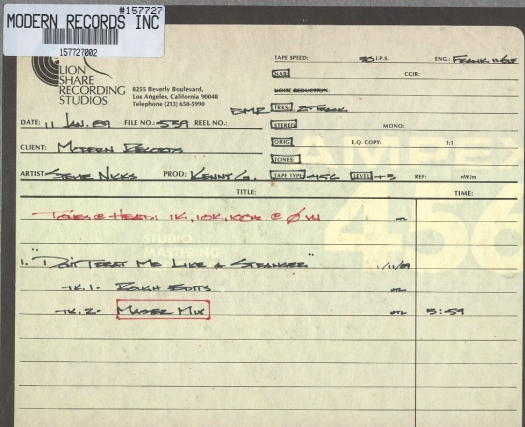 MODERN RECORDS INC
#157727
157727002
LION
SHARE
RECORDING
STUDIOS
8255 Beverly Boulevard,
Los Angeles, California 90048
Telephone (213) 658-5990
TAPE SPEED: 30 I.P.S. ENG.: FRANK WOLF
NAB: CCIR:
NOISE REDUCTION:
TRKS: 2-TRACK
DATE: 11 JAN. 89 FILE NO.: 559 REEL NO.:
STEREO MONO:
CLIENT: MODERN RECORDS
ORIG. E.Q. COPY: 1:1
TONES:
ARTIST: STEVIE NICKS PROD: KENNY G. TAPE TYPE 456 LEVEL +3 REF: nW/m
TITLE: TIME:
TONES @ HEAD: 1K, 10K, 100Hz @ Ø VU
1. "DON'T TREAT ME LIKE A STRANGER" 1/11/89
-TK. 1- ROUGH EDITS
-TK. 2- MASTER MIX 5:59
AMPEX
456